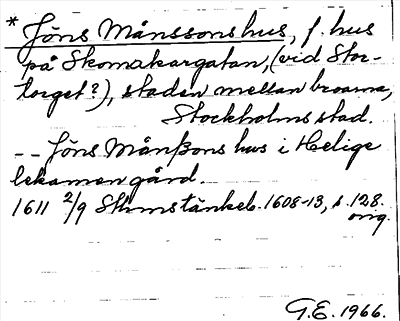 * Jöns Månssons hus, f. hus
på Skomakargatan, (vid Stor-
torget?), staden mellan broarna,
Stockholms stad.
-- Jöns Månßons hus i Helige
lekamen gård.
1611 2/9 Sthms tänkeb. 1608-13, s. 128.
orig.
G.E. 1966.